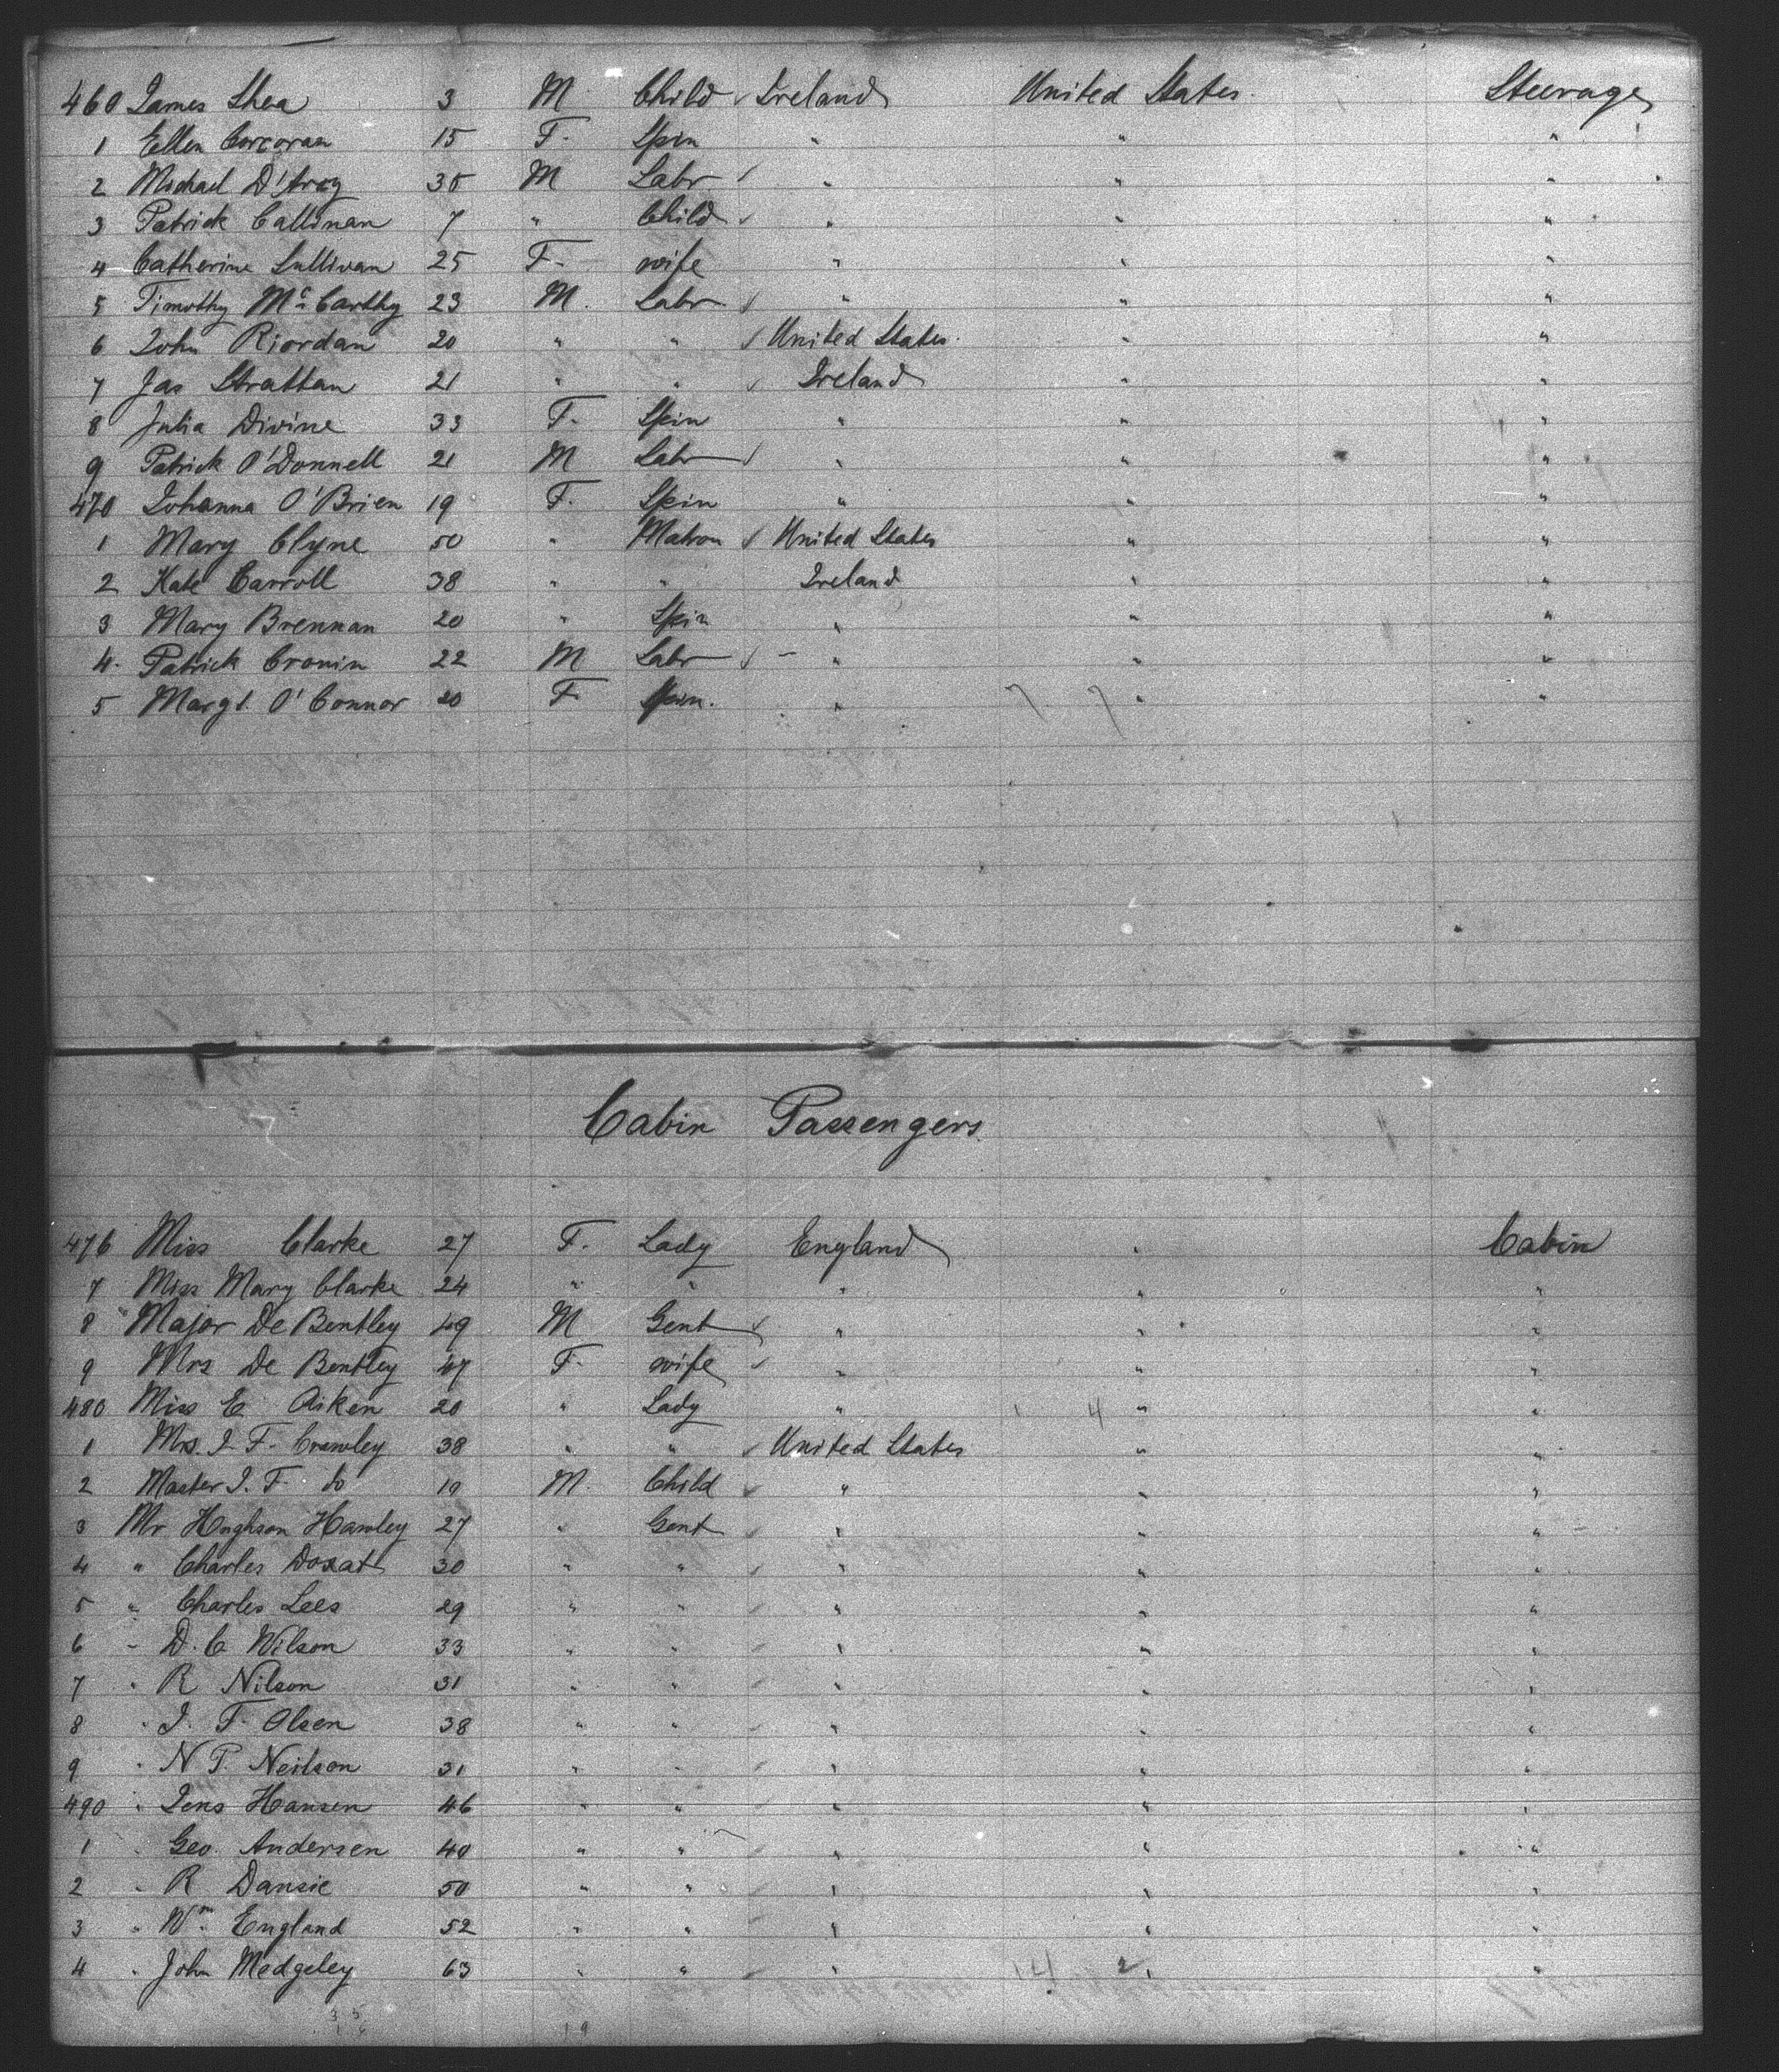 460 James Shea 3 M Child Ireland United States. Steerage
1 Ellen Corcoran 15 F. Spin " " "
2 Michael D'Arcy 35 M Labr " " "
3 Patrick Callinan 7 " Child " " "
4 Catherine Sullivan 25 F. wife " " "
5 Timothy Mc Carthy 23 M. Labr " " "
6 John Riordan 20 " " United States. " "
7 Jas Strattan 21 " " Ireland " "
8 Julia Divine 33 F. Spin " " "
9 Patrick O'Donnell 21 M Labr " " "
470 Johanna O'Brien 19 F. Spin " " "
1 Mary Clyne 50 " Matron United States " "
2 Kate Carroll 38 " " Ireland " "
3 Mary Brennan 20 " Spin " " "
4. Patrick Cronin 22 M Labr " " "
5 Margt. O'Connor 20 F Spin. " " "
Cabin Passengers
476 Miss Clarke 27 F. Lady England " Cabin
7 Miss Mary Clarke 24 " " " " "
8 Major De Bentley 49 M Gent " " "
9 Mrs De Bentley 47 F. wife " " "
480 Miss E Aiken 20 " Lady " 4 " "
1 Mrs. J. F. Crawley 38 " " United States " "
2 Master J. F. do 10 M. Child " " "
3 Mr Hughson Hawley 27 " Gent " " "
4 " Charles Doxat 30 " " " " "
5 " Charles Lees 29 " " " " "
6 " D. C Wilson 33 " " " " "
7 " R Nilson 31 " " " " "
8 " J. F. Olsen 38 " " " " "
9 " N P. Neilson 31 " " " " "
490 " Jens Hansen 46 " " " " "
1 " Geo. Andersen 40 " " " " "
2 " R Dansie 50 " " " " "
3 " Wm. England 52 " " " " "
4 " John Medgeley 63 " " " 14 2 " "